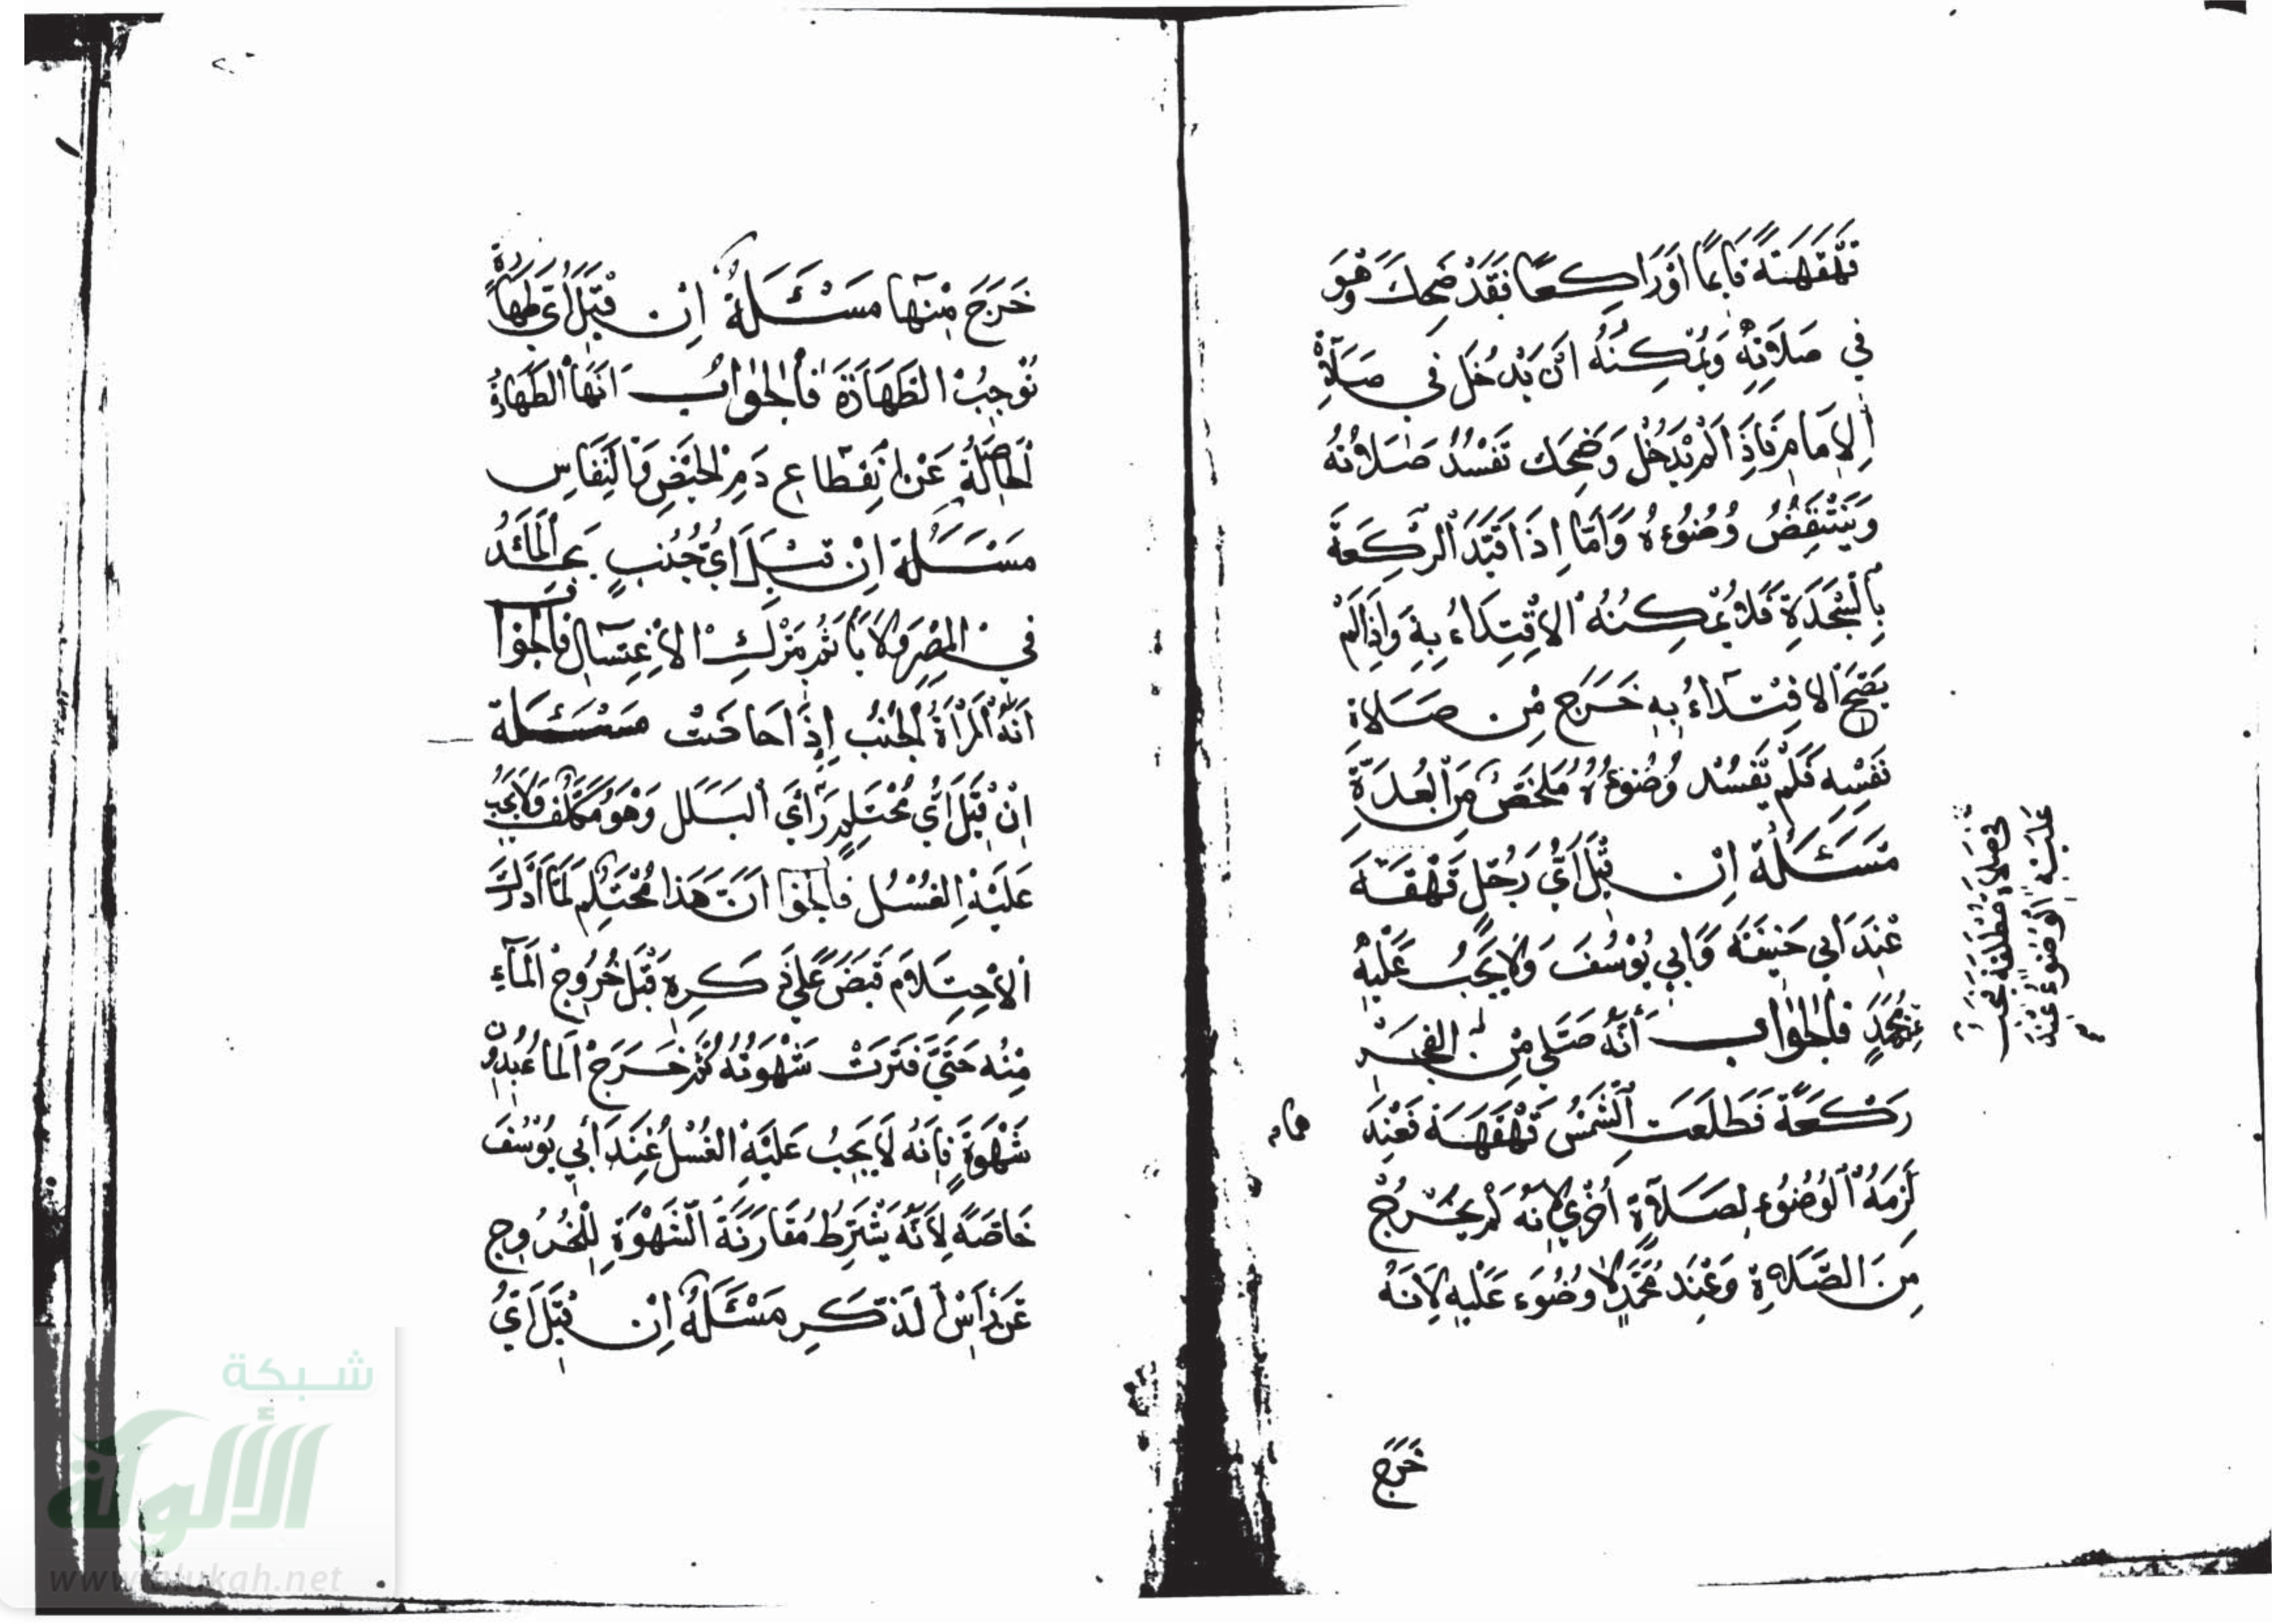 قَهْقَهَةً قَائِمًا اَوْ رَاكِعًا فَقَدْ ضَحِكَ وَهُوَ
فِي صَلَاتِهِ وَيُمْكِنُهُ اَنْ يَدْخُلَ فِي صَلَاةِ
الْاِمَامِ فَاِذَا لَمْ يَدْخُلْ وَضَحِكَ تَفْسُدُ صَلَاتُهُ
وَيَنْتَقِضُ وُضُوءُهُ وَاَمَّا اِذَا قَيَّدَ الرَّكْعَةَ
بِالسَّجْدَةِ فَلَا يُمْكِنُهُ الْاِقْتِدَاءُ بِهِ وَاِذَا لَمْ
يَصِحَّ الْاِقْتِدَاءُ بِهِ خَرَجَ مِنْ صَلَاةِ
نَفْسِهِ فَلَمْ يَفْسُدْ وُضُوءُهُ مُلَخَّصٌ مِنَ الْعُدَّةِ
مَسْئَلَةٌ اِنْ قِيلَ اَيُّ رَجُلٍ قَهْقَهَ
عِنْدَ اَبِي حَنِيفَةَ وَاَبِي يُوسُفَ وَلَا يَجِبُ عَلَيْهِ
عِنْدَ مُحَمَّدٍ فَالْجَوَابُ اَنَّهُ صَلَّى مِنَ الْفَجْرِ
رَكْعَةً فَطَلَعَتِ الشَّمْسُ قَهْقَهَةً فَعِنْدَ
هُمَا
لَزِمَهُ الْوُضُوءُ لِصَلَاةٍ اُخْرَى لِاَنَّهُ لَمْ يَخْرُجْ
مِنَ الصَّلَاةِ وَعِنْدَ مُحَمَّدٍ لَا وُضُوءَ عَلَيْهِ لِاَنَّهُ
خَرَجَ
فِي صَلَاةٍ مُطْلَقَةٍ يَجِبُ
عَلَيْهِ الْوُضُوءُ عِنْدَ
خَرَجَ مِنْهَا مَسْئَلَةٌ اِنْ قِيلَ اَيُّ طَهَارَةٍ
تُوجِبُ الطَّهَارَةَ فَالْجَوَابُ اَنَّهَا الطَّهَارَةُ
الْحَاصِلَةُ عَنْ اِنْقِطَاعِ دَمِ الْحَيْضِ وَالنِّفَاسِ
مَسْئَلَةٌ اِنْ قِيلَ اَيُّ جُنُبٍ يَجِدُ الْمَاءَ
فِي الْمِصْرِ وَلَا يَأْثَمُ بِتَرْكِ الْاِغْتِسَالِ فَالْجَوَابُ
اَنَّهُ الْمَرْاَةُ الْجُنُبُ اِذَا حَاضَتْ مَسْئَلَةٌ
اِنْ قِيلَ اَيُّ مُحْتَلِمٍ رَأَى الْبَلَلَ وَهُوَ مُكَلَّفٌ وَلَا يَجِبُ
عَلَيْهِ الْغُسْلُ فَالْجَوَا اَنَّ هَذَا مُحْتَلِمٌ لَمَّا اَدْرَكَ
الْاِحْتِلَامَ قَبَضَ عَلَى ذَكَرِهِ قَبْلَ خُرُوجِ الْمَاءِ
مِنْهُ حَتَّى فَتَرَتْ شَهْوَتُهُ ثُمَّ خَرَجَ الْمَاءُ بِدُونِ
شَهْوَةٍ فَاِنَّهُ لَا يَجِبُ عَلَيْهِ الْغُسْلُ عِنْدَ اَبِي يُوسُفَ
خَاصَّةً لِاَنَّهُ يَشْتَرِطُ مُقَارَنَةَ الشَّهْوَةِ لِلْخُرُوجِ
عَنْ رَأْسِ الذَّكَرِ مَسْئَلَةٌ اِنْ قِيلَ اَيُّ
شبكة
الألوكة
www.alukah.net